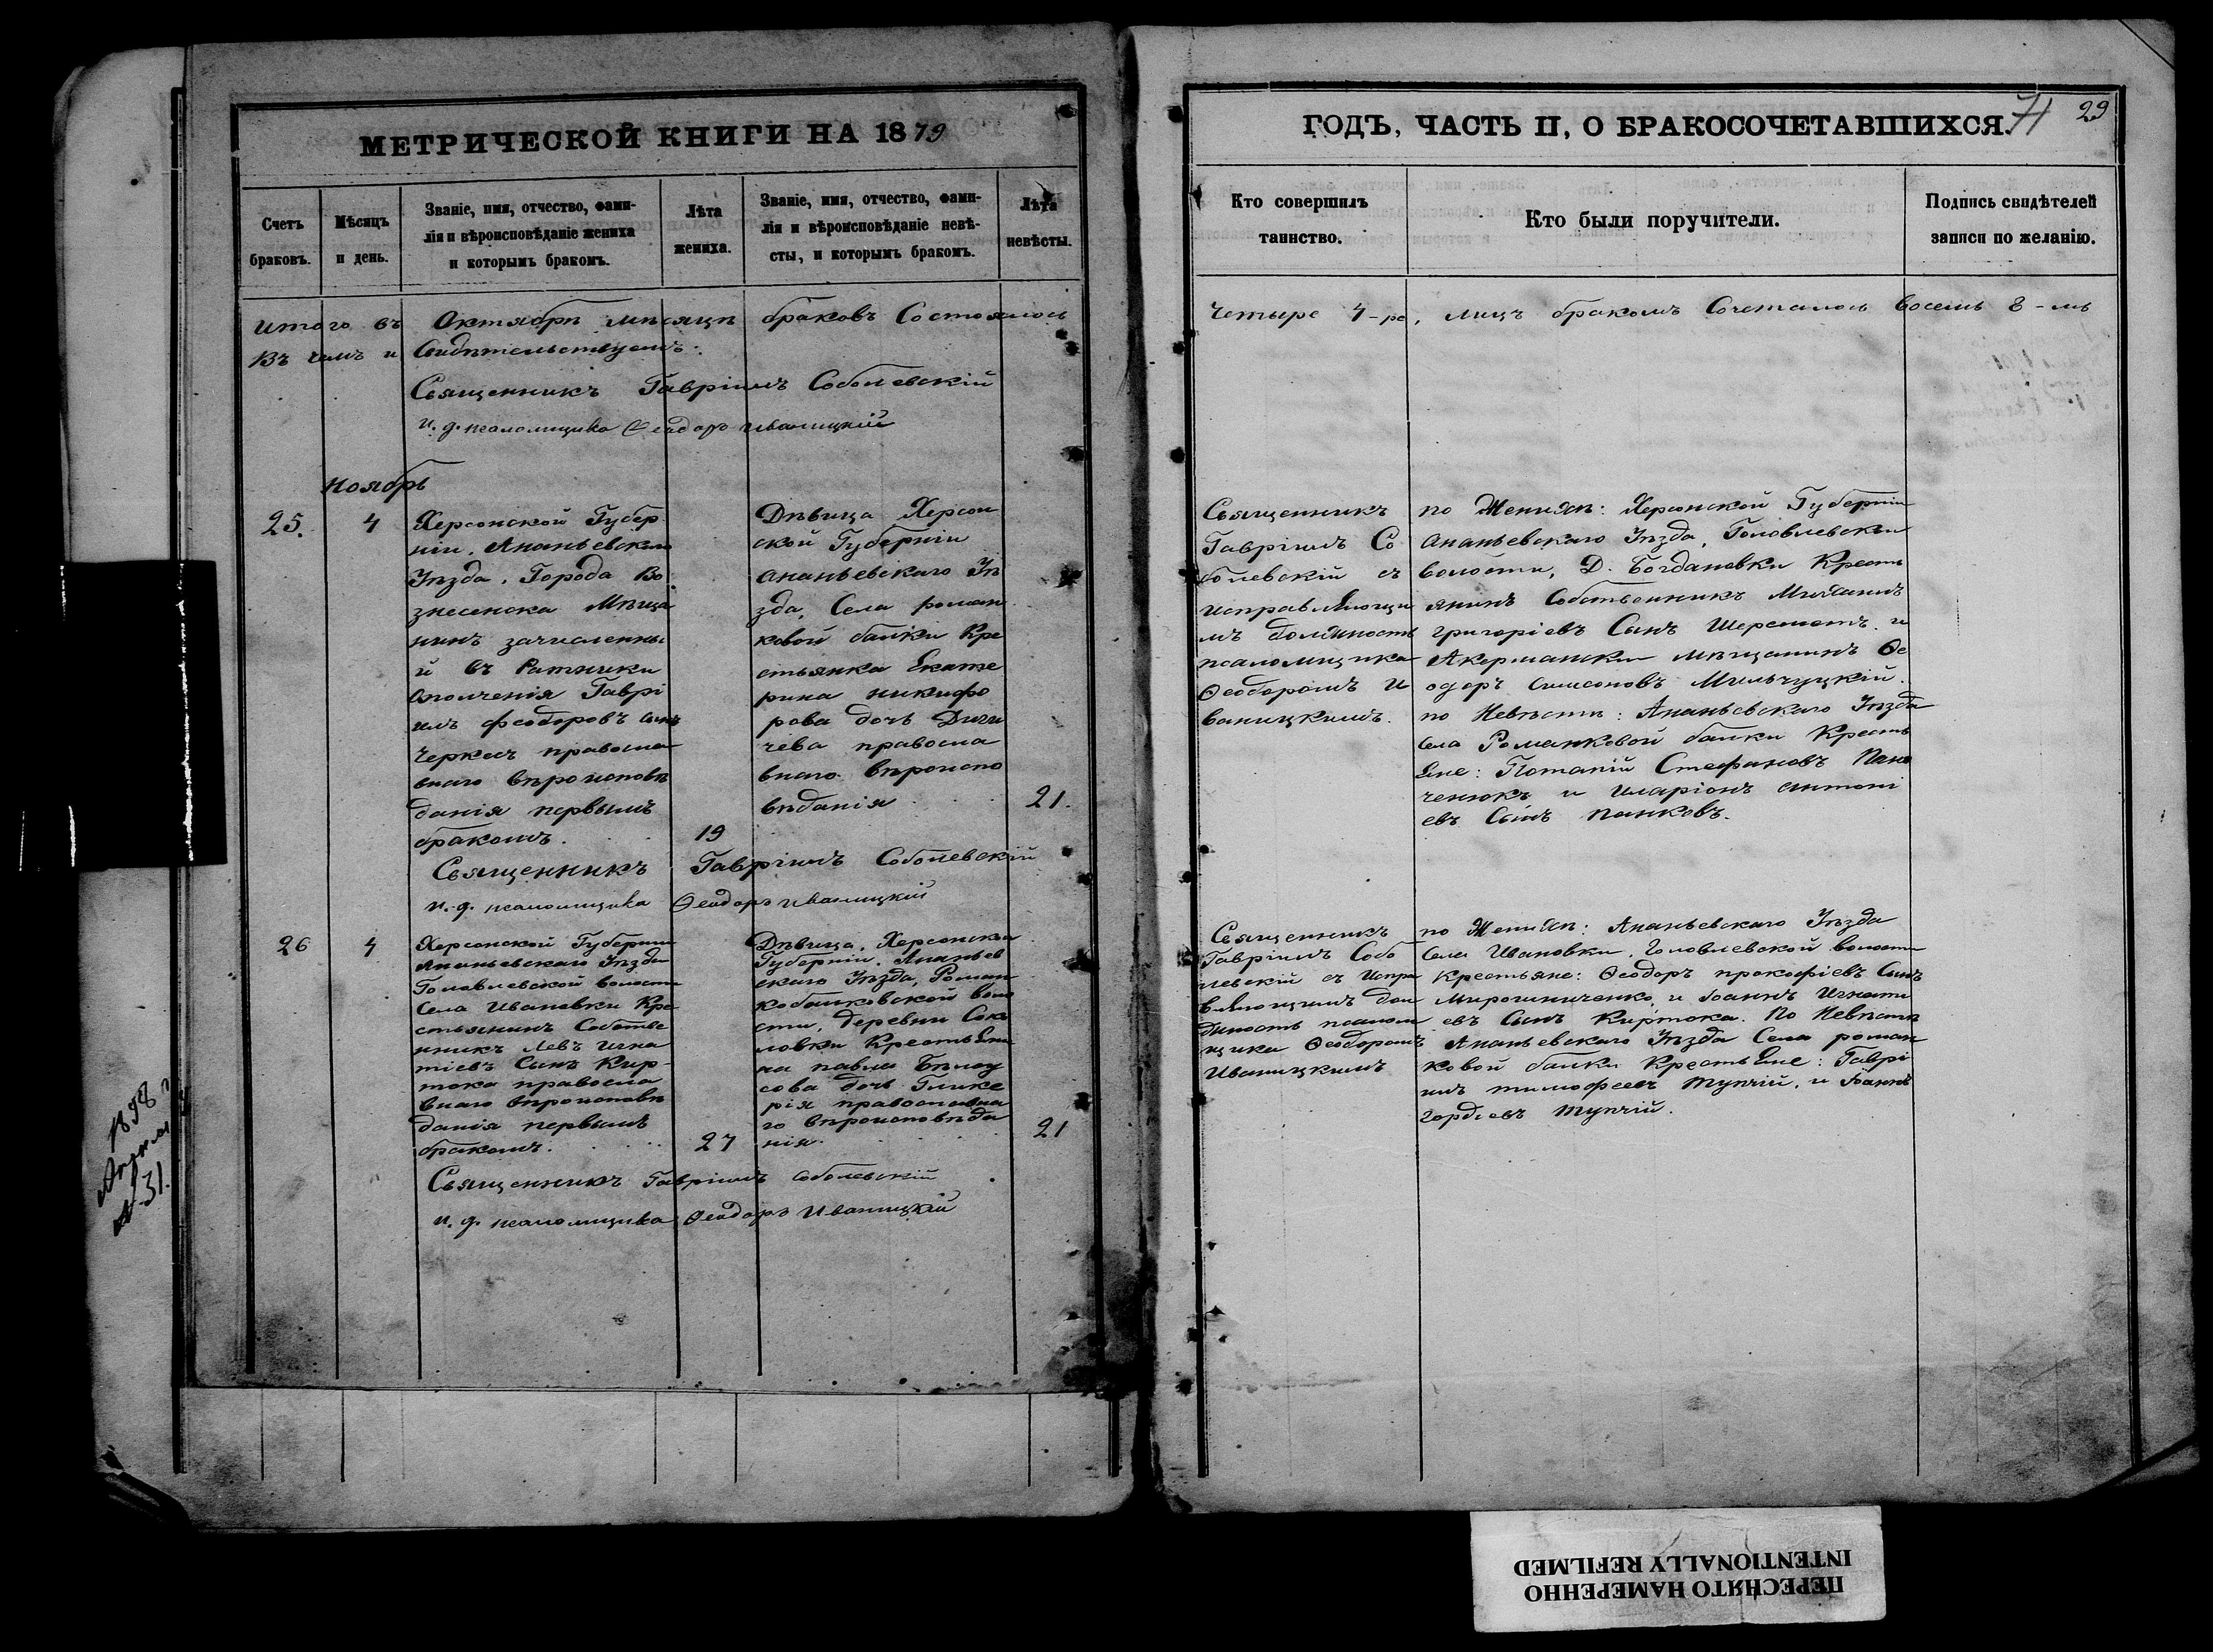 МЕТРИЧЕСКОЙ КНИГИ НА 1879
Счетъ браковъ.
Мѣсяцъ и день.
Званіе, имя, отчество, фами-
лія и вѣроисповѣданіе жениха
и которымъ бракомъ.
Лѣта жениха.
Званіе, имя, отчество, фами-
лія и вѣроисповѣданіе невѣ-
сты, и которымъ бракомъ.
Лѣта невѣсты.
итого въ Октябрѣ мѣсяцѣ браковъ Состоялось
Въ чемъ и Свидѣтельствуемъ:
Священникъ Гавріилъ Соболевскій
и. д. псаломщика Ѳеодоръ Иваницкій
Ноябрь
25.
4
Херсонской Губер
ніи. Ананьевскаго
Уѣзда. Города Во
знесенска Мѣща
нинъ зачисленны
й въ Ратники
Ополченія Гаврі
илъ феодоровъ сынъ
Черкез правосла
внаго вѣроисповѣ
данія первымъ
бракомъ.
19
Дѣвица Херсон
ской Губерніи
Ананьевскаго Уѣ
зда, Села роман
ковой балки Кре
стьянка Екате
рина никифо
рова дочь Дичи
чева правосла
внаго вѣроиспо
вѣданія
21.
Священникъ Гавріилъ Соболевскій
и. д. псаломщика Ѳеодоръ Иваницкій
26
4
Херсонской Губерніи
Ананьевскаго Уѣзда
Головлевской волости
Села Ивановки Кре
стьянинъ Собстве
нникъ Левъ Игна
тіевъ Сынъ Кир-
тока правосла
внаго вѣроисповѣ
данія первымъ
бракомъ.
27
Дѣвица. Херсонской
Губерніи. Ананьев
скаго Уѣзда, Роман
кобалковской воло
сти, деревни Соко
ловки Крестьян
ка павла Бѣлоу
сова дочь Глике
рія православна
го вѣроисповѣда
нія.
21
Священникъ Гавріилъ Соболевскій
и. д. псаломщика Ѳеодоръ Иваницкій
1898 г
Апреля
№ 31.
ГОДЪ, ЧАСТЬ II, О БРАКОСОЧЕТАВШИХСЯ.
71
29
Кто совершилъ таинство.
Кто были поручители.
Подпись свидѣтелей записи по желанію.
Четыре 4-ре, лицъ бракомъ Сочеталось восемь 8-мь
Священникъ
Гавріилъ Со
болевскій съ
исправляющи
мъ должность
псаломщика
Ѳеодоромъ И
ваницкимъ.
по Женихѣ: Херсонской Губерніи
Ананьевскаго Уѣзда, Головлевской
волости, Д. Богдановки Кресть
янинъ Собственникъ Михаилъ
григоріевъ Сынъ Шереметъ. и
Акерманскій мѣщанинъ Ѳе
одоръ симеоновъ Мильчуцкій.
по Невѣстѣ: Ананьевскаго Уѣзда
Села Романковой балки Кресть
яне: Потапій Стефановъ Пана
ченюкъ и иларіонъ антоні
евъ Сынъ панковъ.
Священникъ
Гавріилъ Собо
левскій съ Испра
вляющимъ дол
жность псалом
щика Ѳеодоромъ
Иваницкимъ
по Женихѣ: Ананьевскаго Уѣзда
Села Ивановки. Головлевской волости
Крестьяне: Ѳеодоръ прокофіевъ Сынъ
Мирошниченко, и Іоаннъ Игнати
евъ Сынъ Киртока. По Невѣстѣ
Ананьевскаго Уѣзда Села роман
ковой балки Крестьяне: Гаврі
илъ тимофеевъ Тупчій, и Іоаннъ
гордіевъ Тупчій.
ПЕРЕСНЯТО НАМЕРЕННО
INTENTIONALLY REFILMED